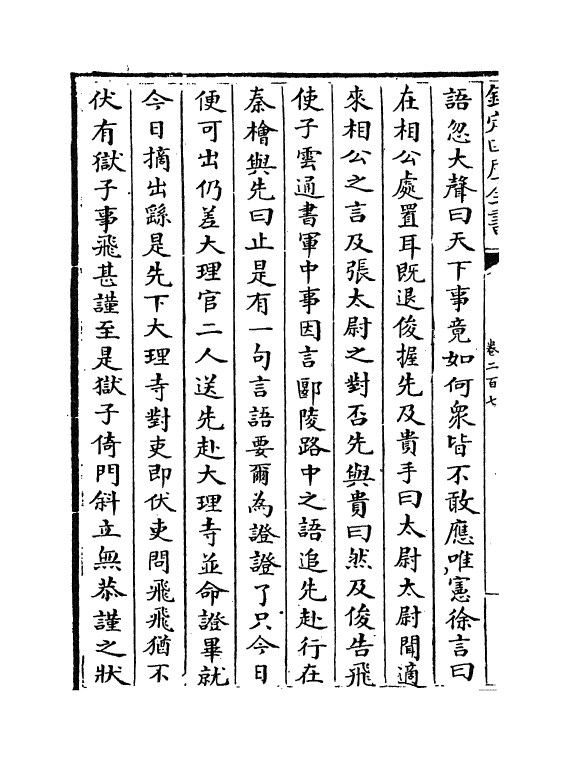 欽定四庫全書
卷二百七
語忽大聲曰天下事竟如何衆皆不敢應唯憲徐言曰
在相公處置耳既退俊握先及貴手曰太尉太尉聞適
來相公之言及張太尉之對否先與貴曰然及俊告飛
使子雲通書軍中事因言郾陵路中之語追先赴行在
秦檜與先曰止是有一句言語要爾為證證了只今日
便可出仍差大理官二人送先赴大理寺並命證畢就
今日摘出繇是先下大理寺對吏即伏吏問飛飛猶不
伏有獄子事飛甚謹至是獄子倚門斜立無恭謹之狀